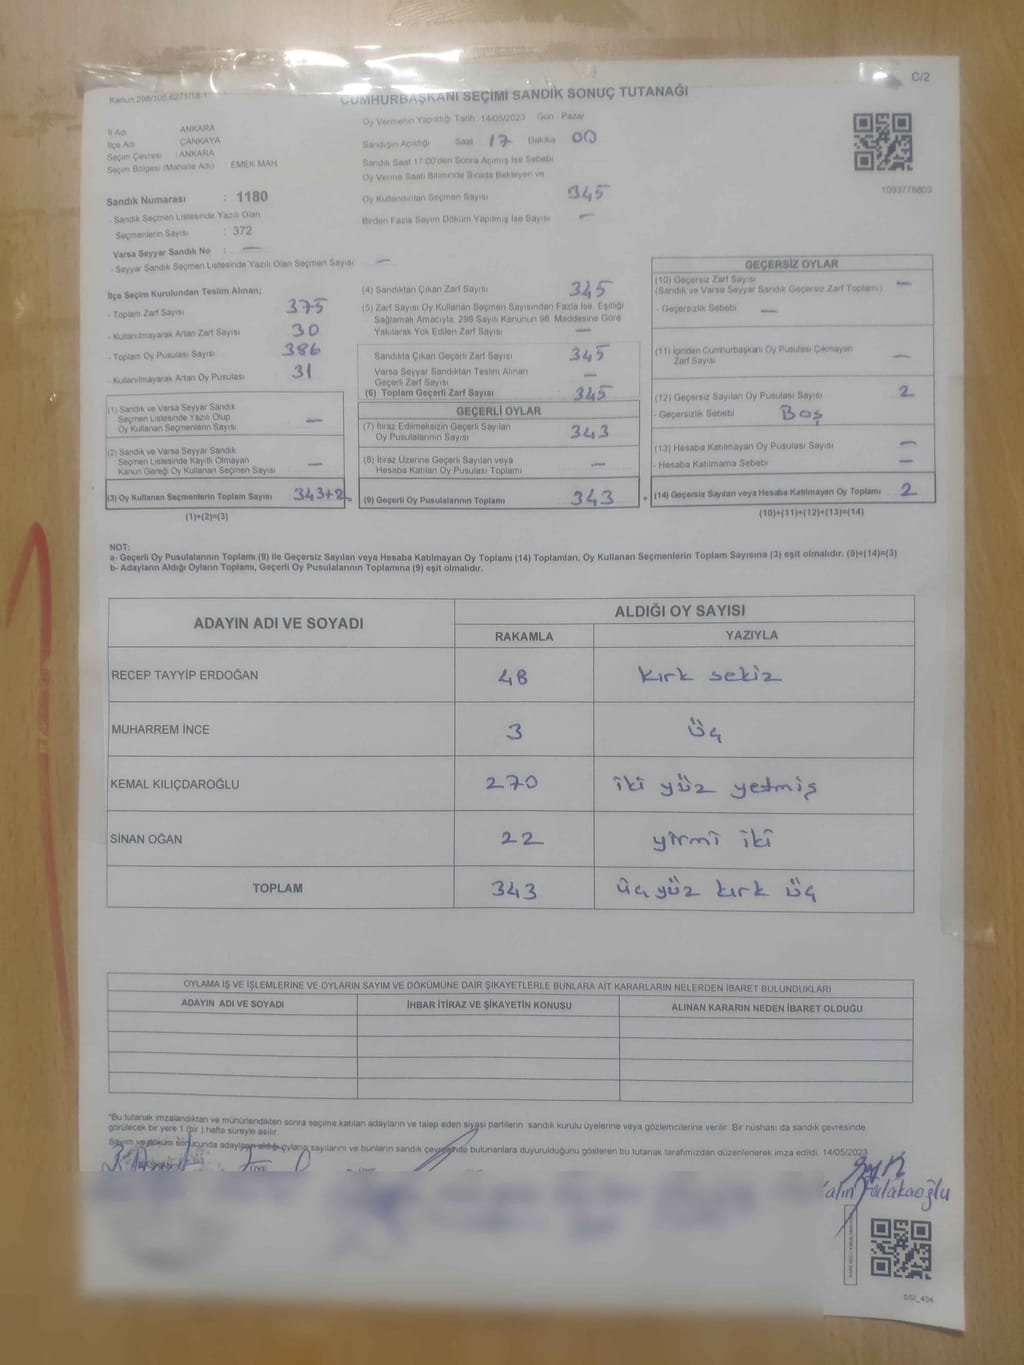 C/2
Kanun 298/105,6271/18-1
CUMHURBAŞKANI SEÇİMİ SANDIK SONUÇ TUTANAĞI
İl Adı : ANKARA
İlçe Adı : ÇANKAYA
Seçim Çevresi : ANKARA
Seçim Bölgesi (Mahalle Adı) : EMEK MAH.
Oy Vermenin Yapıldığı Tarih : 14/05/2023 Gün : Pazar
Sandığın Açıldığı Saat 17 Dakika 00
Sandık Saat 17:00'den Sonra Açılmış İse Sebebi
Oy Verme Saati Bitiminde Sırada Bekleyen ve
Oy Kullandırılan Seçmen Sayısı 345
Birden Fazla Sayım Döküm Yapılmış İse Sayısı —
1093778803
Sandık Numarası : 1180
- Sandık Seçmen Listesinde Yazılı Olan
Seçmenlerin Sayısı : 372
Varsa Seyyar Sandık No : —
- Seyyar Sandık Seçmen Listesinde Yazılı Olan Seçmen Sayısı : —
İlçe Seçim Kurulundan Teslim Alınan;
- Toplam Zarf Sayısı 375
- Kullanılmayarak Artan Zarf Sayısı 30
- Toplam Oy Pusulası Sayısı 386
- Kullanılmayarak Artan Oy Pusulası 31
(1) Sandık ve Varsa Seyyar Sandık
Seçmen Listesinde Yazılı Olup
Oy Kullanan Seçmenlerin Sayısı —
(2) Sandık ve Varsa Seyyar Sandık
Seçmen Listesinde Kayıtlı Olmayan
Kanun Gereği Oy Kullanan Seçmen Sayısı —
(3) Oy Kullanan Seçmenlerin Toplam Sayısı 343+2 =
(1)+(2)=(3)
(4) Sandıktan Çıkan Zarf Sayısı 345
(5) Zarf Sayısı Oy Kullanan Seçmen Sayısından Fazla İse, Eşitliği
Sağlamak Amacıyla, 298 Sayılı Kanunun 98. Maddesine Göre
Yakılarak Yok Edilen Zarf Sayısı —
Sandıkta Çıkan Geçerli Zarf Sayısı 345
Varsa Seyyar Sandıktan Teslim Alınan
Geçerli Zarf Sayısı —
(6) Toplam Geçerli Zarf Sayısı 345
GEÇERLİ OYLAR
(7) İtiraz Edilmeksizin Geçerli Sayılan
Oy Pusulalarının Sayısı 343
(8) İtiraz Üzerine Geçerli Sayılan veya
Hesaba Katılan Oy Pusulası Toplamı —
(9) Geçerli Oy Pusulalarının Toplamı 343 +
GEÇERSİZ OYLAR
(10) Geçersiz Zarf Sayısı
(Sandık ve Varsa Seyyar Sandık Geçersiz Zarf Toplamı) —
- Geçersizlik Sebebi —
(11) İçinden Cumhurbaşkanı Oy Pusulası Çıkmayan
Zarf Sayısı —
(12) Geçersiz Sayılan Oy Pusulası Sayısı 2
- Geçersizlik Sebebi Boş
(13) Hesaba Katılmayan Oy Pusulası Sayısı —
- Hesaba Katılmama Sebebi —
(14) Geçersiz Sayılan veya Hesaba Katılmayan Oy Toplamı 2
(10)+(11)+(12)+(13)=(14)
NOT:
a- Geçerli Oy Pusulalarının Toplamı (9) ile Geçersiz Sayılan veya Hesaba Katılmayan Oy Toplamı (14) Toplamları, Oy Kullanan Seçmenlerin Toplam Sayısına (3) eşit olmalıdır. (9)+(14)=(3)
b- Adayların Aldığı Oyların Toplamı, Geçerli Oy Pusulalarının Toplamına (9) eşit olmalıdır.
ADAYIN ADI VE SOYADI ALDIĞI OY SAYISI
RAKAMLA YAZIYLA
RECEP TAYYİP ERDOĞAN 48 kırk sekiz
MUHARREM İNCE 3 üç
KEMAL KILIÇDAROĞLU 270 iki yüz yetmiş
SİNAN OĞAN 22 yirmi iki
TOPLAM 343 üç yüz kırk üç
OYLAMA İŞ VE İŞLEMLERİNE VE OYLARIN SAYIM VE DÖKÜMÜNE DAİR ŞİKAYETLERLE BUNLARA AİT KARARLARIN NELERDEN İBARET BULUNDUKLARI
ADAYIN ADI VE SOYADI İHBAR İTİRAZ VE ŞİKAYETİN KONUSU ALINAN KARARIN NEDEN İBARET OLDUĞU
*Bu tutanak imzalandıktan ve mühürlendikten sonra seçime katılan adayların ve talep eden siyasi partilerin sandık kurulu üyelerine veya gözlemcilerine verilir. Bir nüshası da sandık çevresinde
görülecek bir yere 1 (bir) hafta süreyle asılır.
Sayım ve döküm sonucunda adayların aldığı oyların sayılarını ve bunların sandık çevresinde bulunanlara duyurulduğunu gösteren bu tutanak tarafımızdan düzenlenerek imza edildi. 14/05/2023
ÜYE